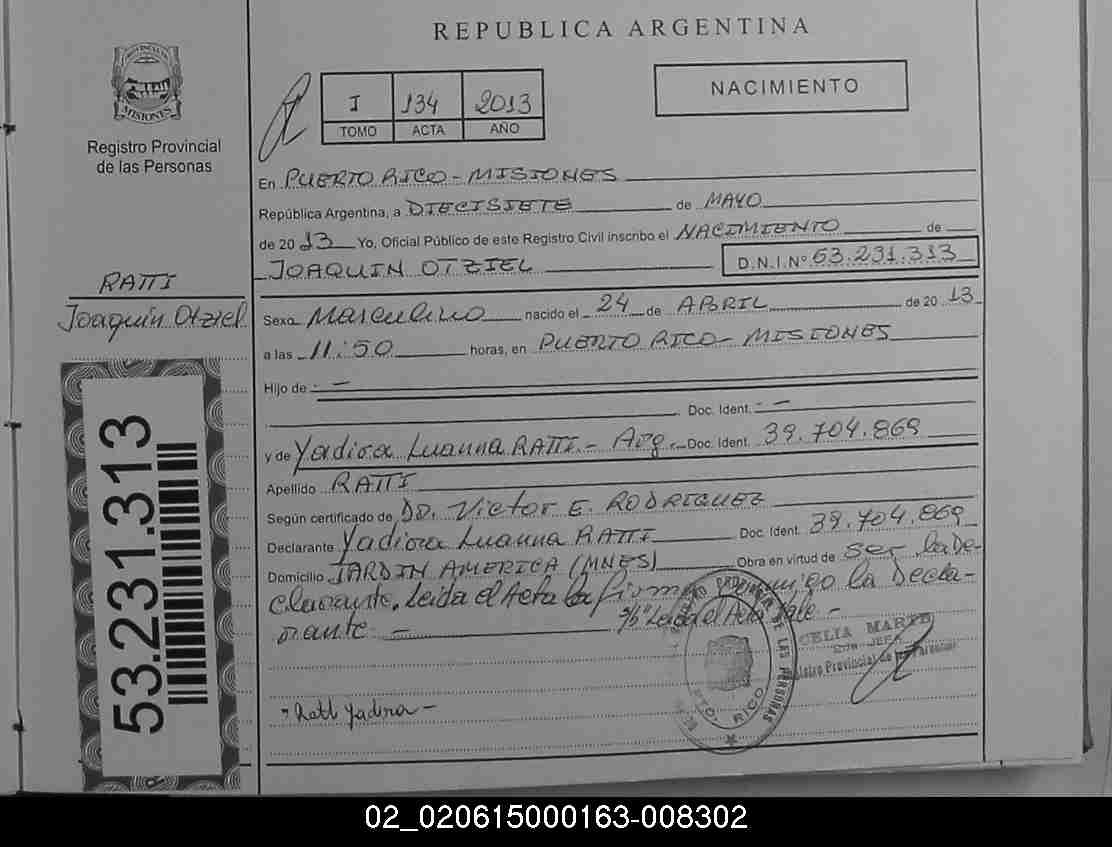 REPUBLICA ARGENTINA
PROVINCIA DE
MISIONES
Registro Provincial
de las Personas
I 134 2013
TOMO ACTA AÑO
NACIMIENTO
En PUERTO RICO - MISIONES
República Argentina, a DIECISIETE de MAYO
de 2013 Yo, Oficial Público de este Registro Civil inscribo el NACIMIENTO de
JOAQUIN OTZIEL D.N.I.Nº 53.231.313
RATTI
Joaquín Otziel
Sexo Masculino nacido el 24 de ABRIL de 2013
a las 11:50 horas, en PUERTO RICO - MISIONES
Hijo de - —
Doc. Ident. - —
y de Yadira Luanna RATTI - Arg. Doc. Ident. 39.704.869
Apellido RATTI
Según certificado de Dr. Victor E. RODRIGUEZ
Declarante Yadira Luanna RATTI Doc. Ident. 39.704.869
Domicilio JARDIN AMERICA (MNES) Obra en virtud de ser la De-
clarante. Leida el Acta la firma conmigo la Decla-
rante - S/b "Leida el Acta" Vale -
53.231.313
CELIA MARTA
Registro Provincial de las Personas
REGISTRO PROVINCIAL DE LAS PERSONAS
PTO. RICO
- Ratti Yadira -
02_020615000163-008302